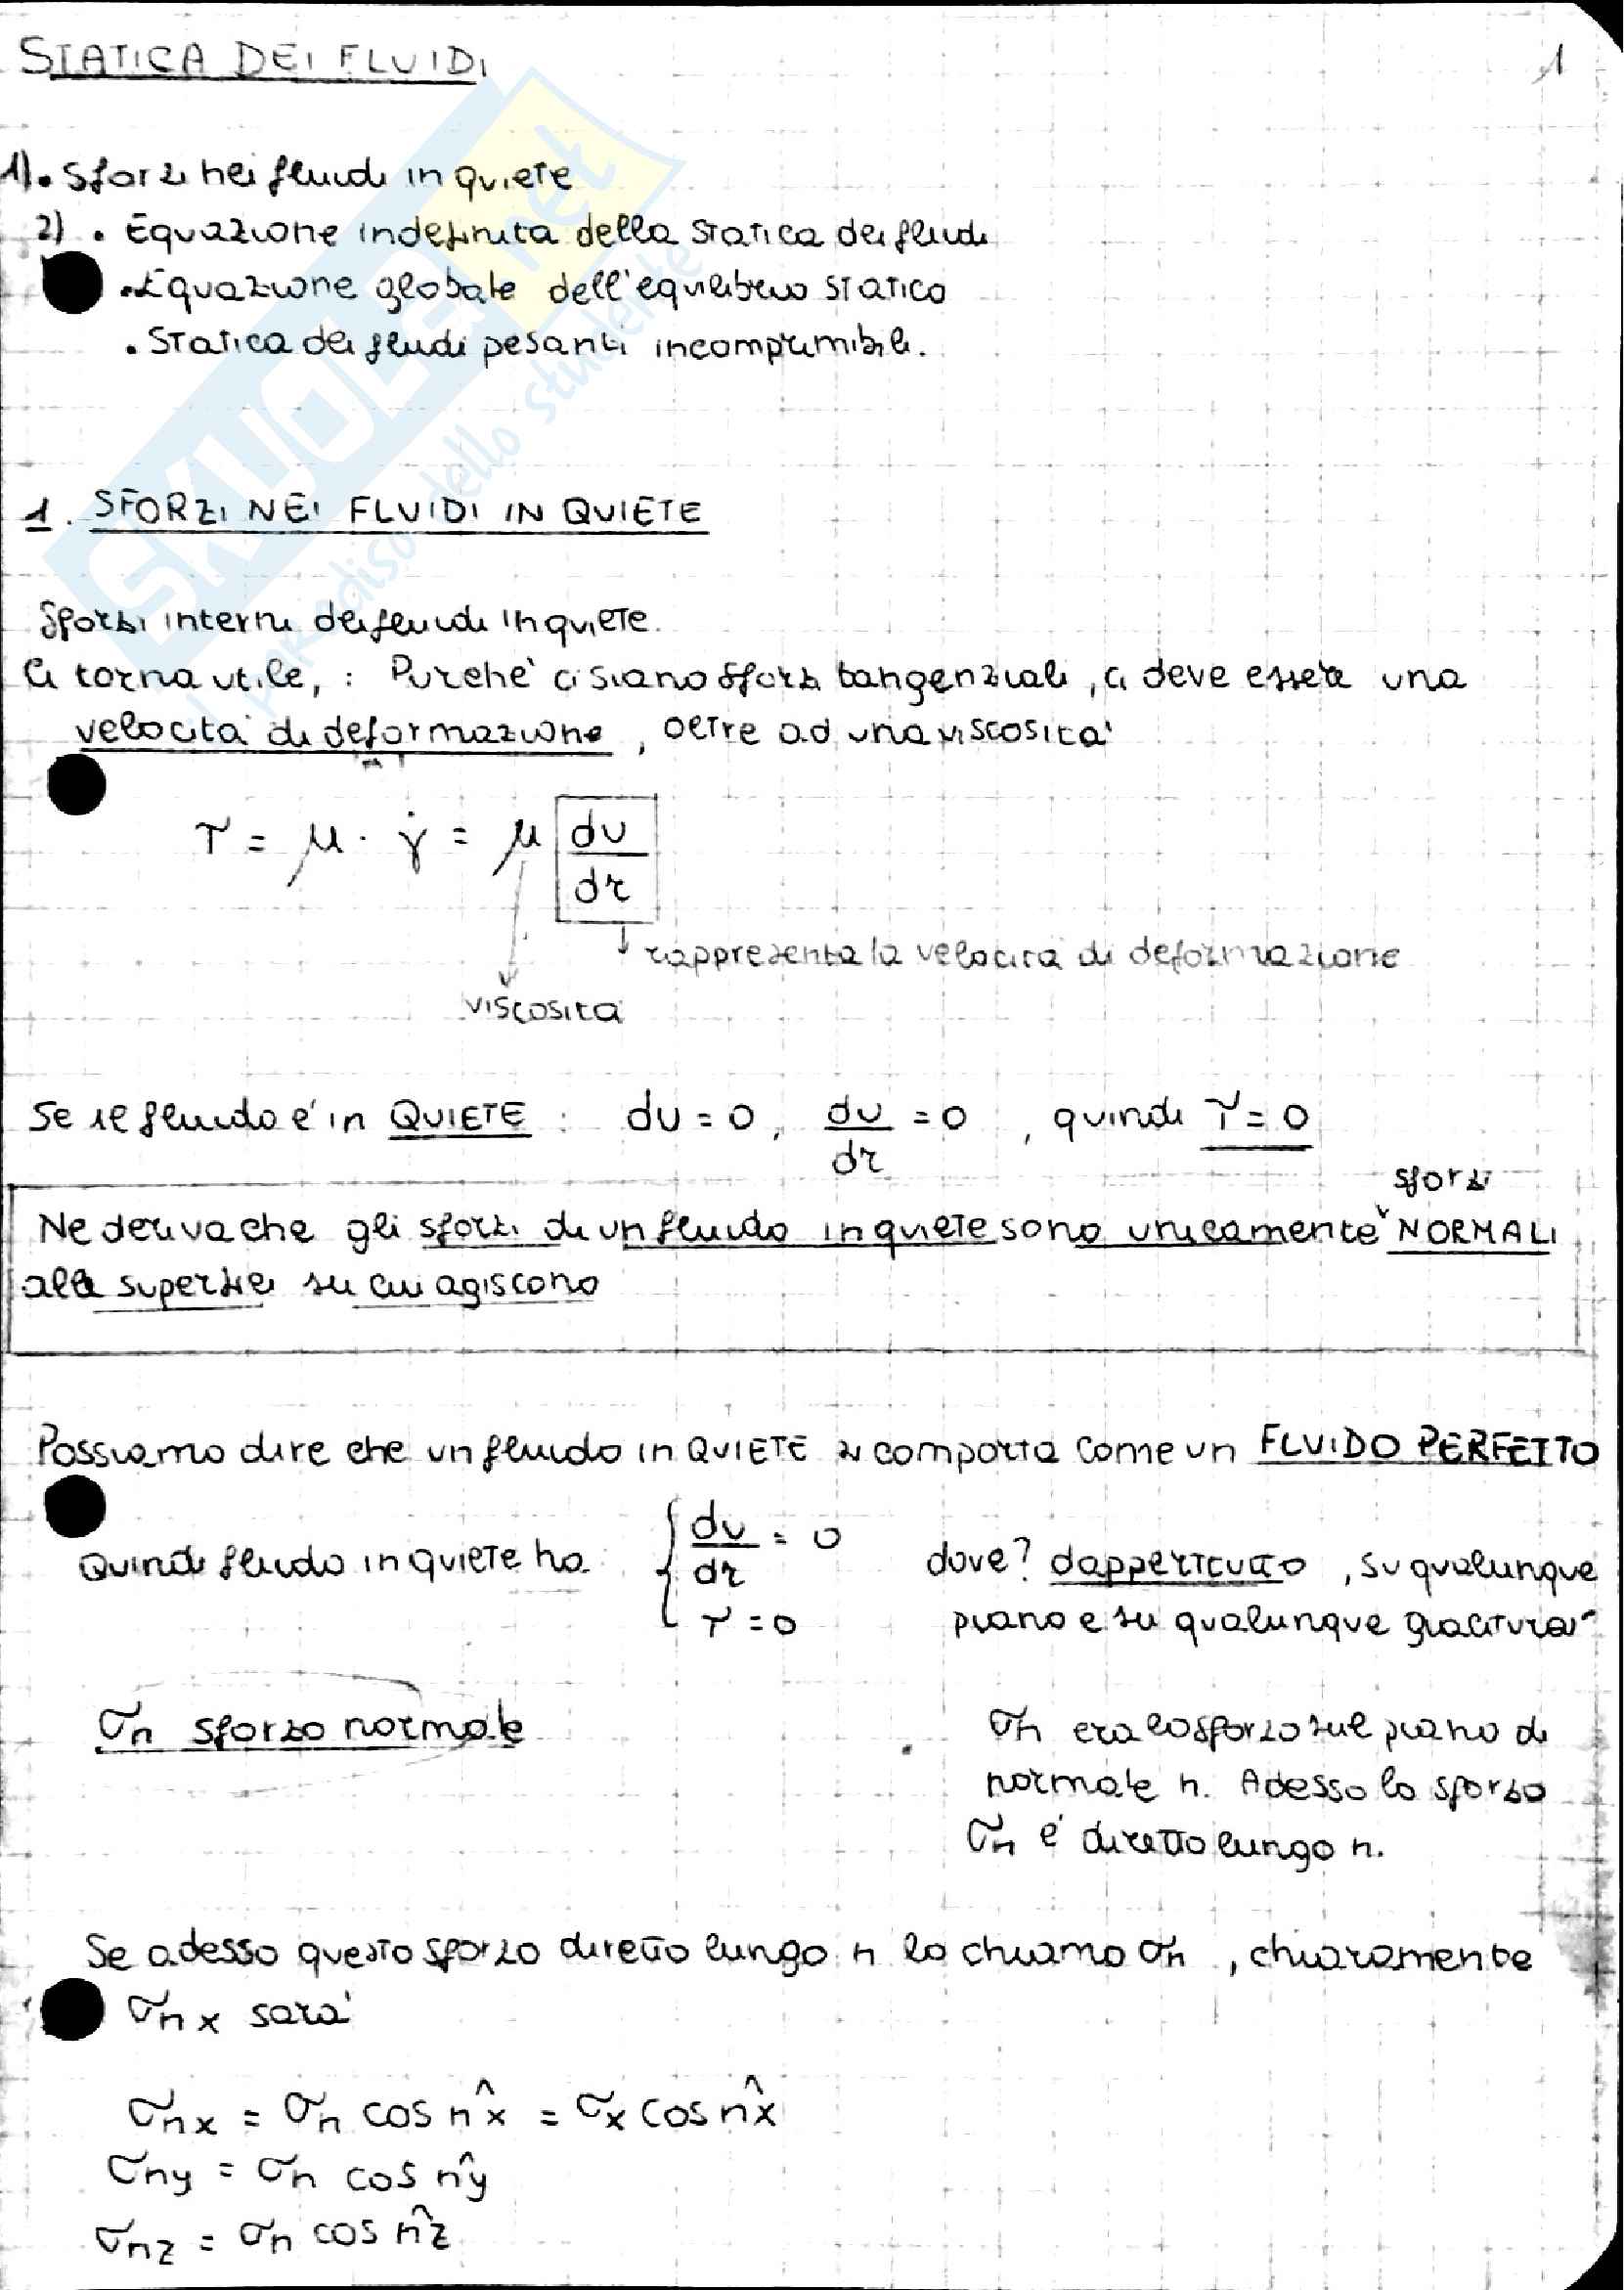 STATICA DEI FLUIDI
1
1). Sforzi nei fluidi in quiete
2) . Equazione indefinita della statica dei fluidi
. Equazione globale dell'equilibrio statico
. Statica dei fluidi pesanti incomprimibili.
1. SFORZI NEI FLUIDI IN QUIETE
Sforzi interni dei fluidi in quiete.
Ci torna utile, : Purchè ci siano sforzi tangenziali, ci deve essere una
velocità di deformazione, oltre ad una viscosità
τ = μ · γ̇ = μ dv/dr
rappresenta la velocità di deformazione
viscosità
Se il fluido è in QUIETE : dv = 0, dv/dr = 0 , quindi τ = 0
sforzi
Ne deriva che gli sforzi di un fluido in quiete sono unicamente NORMALI
alle superfici su cui agiscono
Possiamo dire che un fluido in QUIETE si comporta come un FLUIDO PERFETTO
Quindi fluido in quiete ha: { dv/dr = 0 dove? dappertutto, su qualunque
τ = 0 piano e su qualunque giacitura
σn sforzo normale
σn era lo sforzo sul piano di
normale n. Adesso lo sforzo
σn è diretto lungo n.
Se adesso questo sforzo diretto lungo n lo chiamo σn , chiaramente
σnx sarà
σnx = σn cos n^x = σx cos n^x
σny = σn cos n^y
σnz = σn cos n^z
SKUOLA.net
il paradiso dello studente